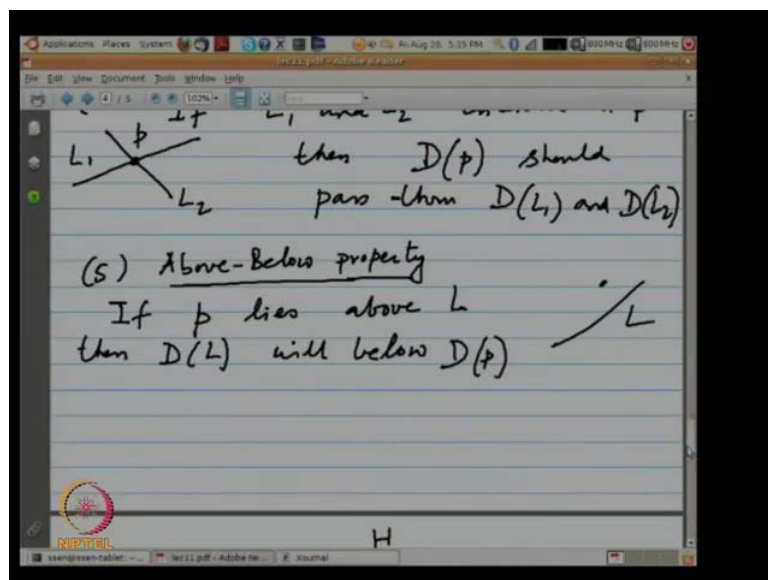 Applications Places System Fri Aug 28, 5:15 PM 800 MHz 800 MHz
lec11.pdf - Adobe Reader
File Edit View Document Tools Window Help
4 / 5 102%
If L1 and L2
L1 p then D(p) should
L2 pass thru D(L1) and D(L2)
(5) Above-Below property
If p lies above L
L
then D(L) will below D(p)
H
NPTEL
ssen@ssen-tablet: ~... lec11.pdf - Adobe Re... Xournal